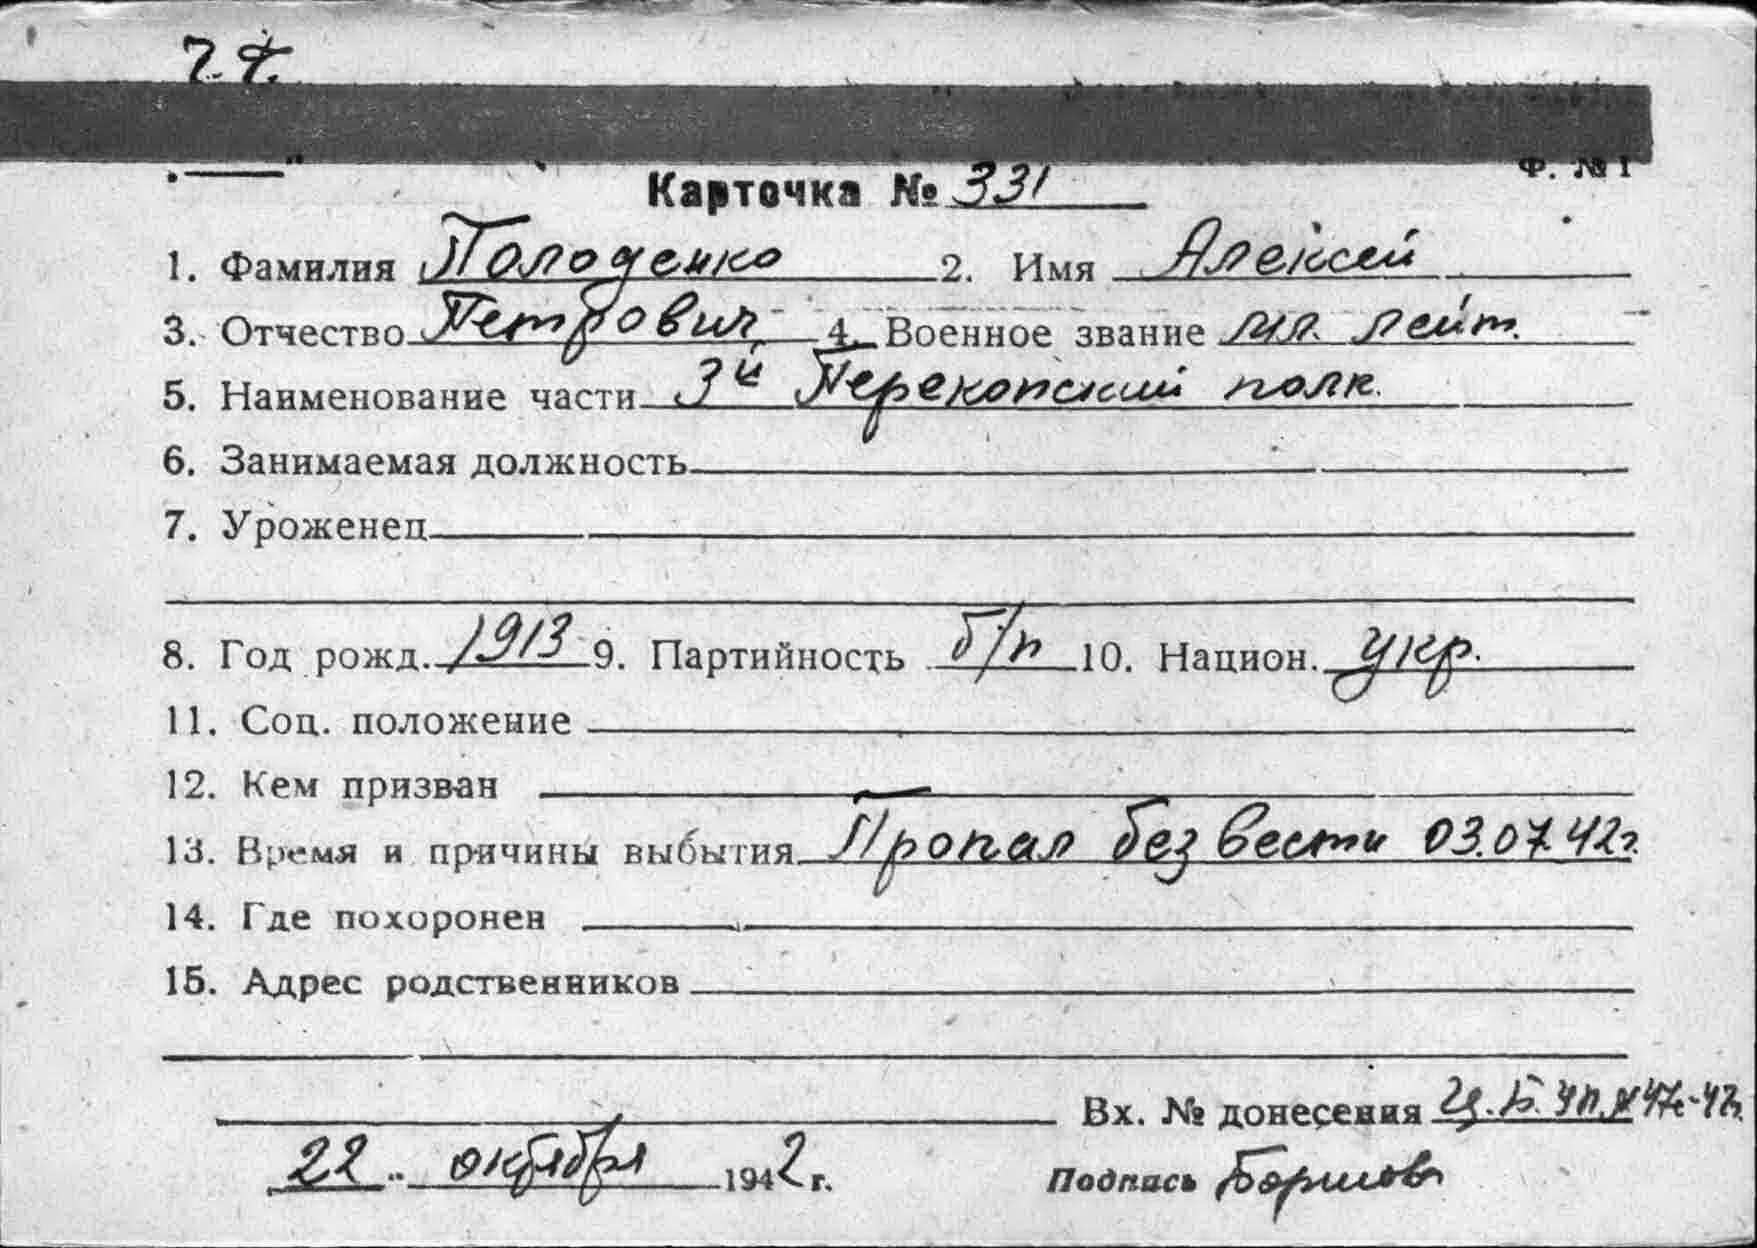 Ф. № 1
Карточка № 331
1. Фамилия Полоденко 2. Имя Алексей
3. Отчество Петрович 4. Военное звание мл. лейт.
5. Наименование части 3й Перекопский полк.
6. Занимаемая должность
7. Уроженец
8. Год рожд. 1913 9. Партийность б/п 10. Национ. укр.
11. Соц. положение
12. Кем призван
13. Время и причины выбытия Пропал без вести 03.07.42г.
14. Где похоронен
15. Адрес родственников
Вх. № донесения
22 октября 1942 г. Подпись